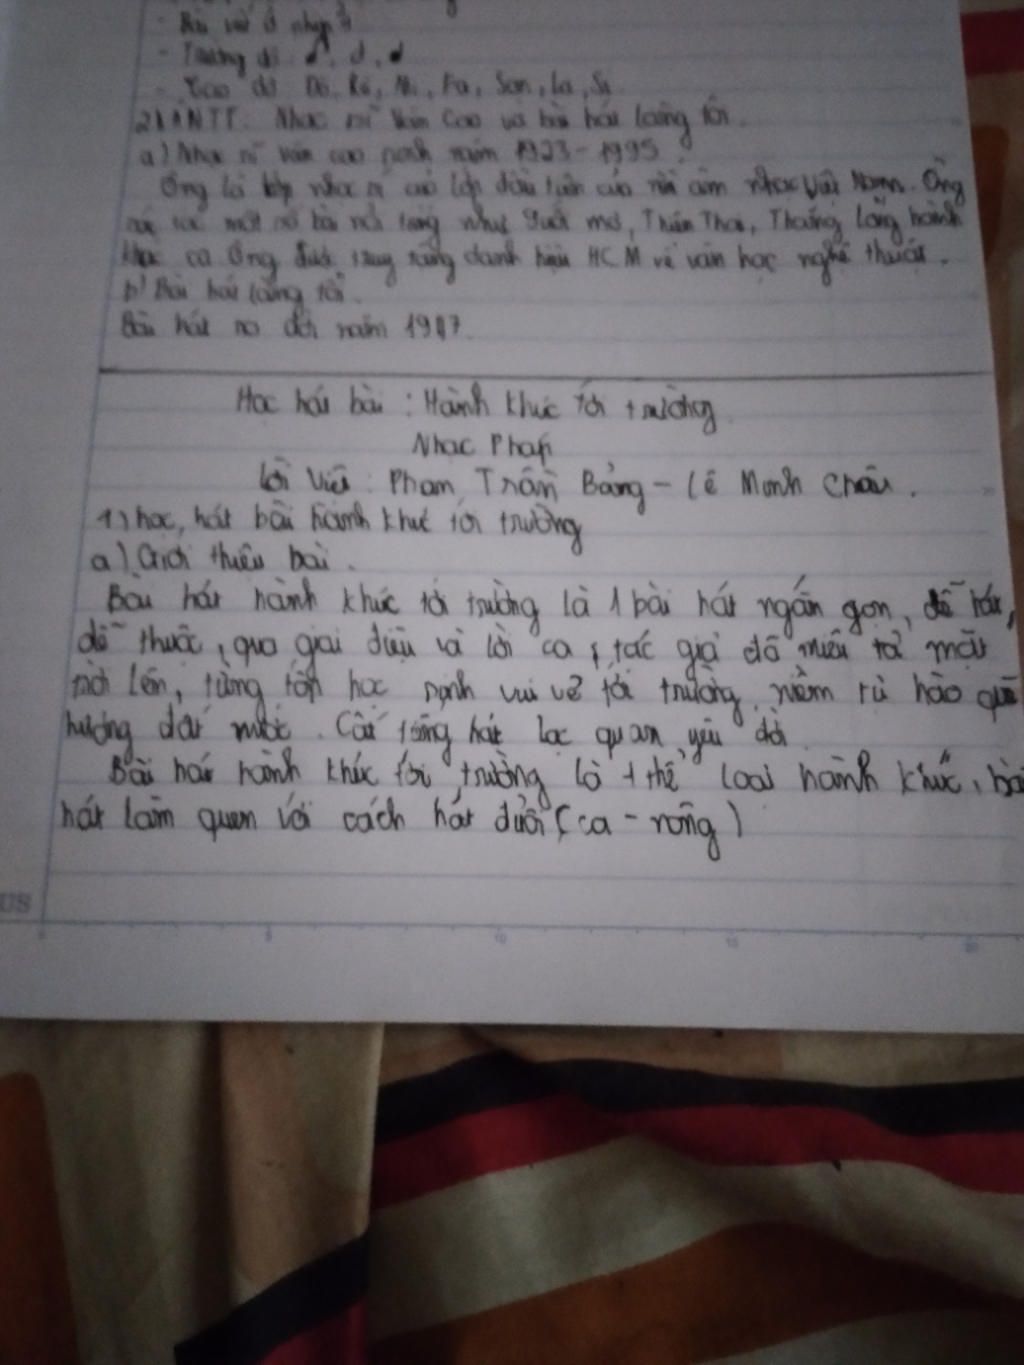 - Bài viết ở nhịp
- Trường độ
- Cao độ Đô, Rê, Mi, Fa, Son, La, Si
2) ANTT. Nhạc sĩ Văn Cao và bài hát làng tôi.
a) Nhạc sĩ văn cao năm 1923-1995.
Ông là lớp nhạc sĩ lớp đầu tiên của nền âm nhạc Việt Nam. Ông
một số bài nổi tiếng như Suối mơ, Thiên Thai, Thăng Long hành
khúc ca Ông được truy tặng danh hiệu HCM về văn học nghệ thuật.
b) Bài hát làng tôi.
Bài hát ra đời năm 1947.
Học hát bài: Hành khúc tới trường
Nhạc Pháp
Lời Việt: Phan Trần Bảng - Lê Minh Châu.
1) học, hát bài hành khúc tới trường
a) Giới thiệu bài.
Bài hát hành khúc tới trường là 1 bài hát ngắn gọn, dễ hát,
dễ thuộc, qua giai điệu và lời ca, tác giả đã miêu tả mặt
trời lên, từng tốp học sinh vui vẻ tới trường, niềm tự hào quê
hương đất nước. Cất tiếng hát lạc quan, yêu đời
Bài hát hành khúc tới trường là 1 thể loại hành khúc, bài
hát làm quen với cách hát đuổi (ca-nông)